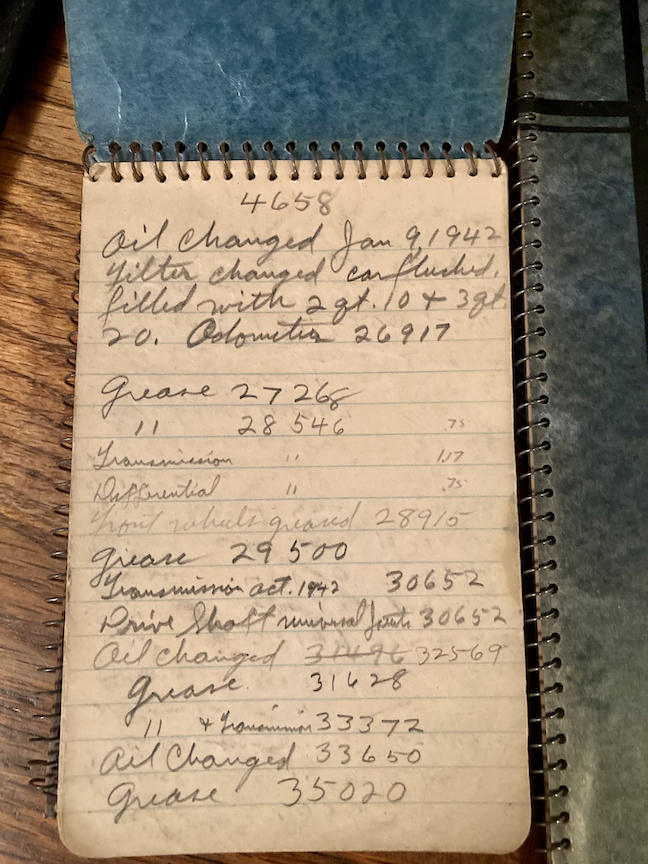 4658
Oil Changed Jan 9, 1942
Filter changed car flushed,
filled with 2 qt. 10 + 3 qt
20. Odometer 26917
Grease 27268
" 28546 .75
Transmission " 1.17
Differential " .75
Front wheels greased 28915
Grease 29500
Transmission Oct. 1942 30652
Drive Shaft universal joints 30652
Oil Changed 31496 32569
Grease 31628
" + Transmission 33372
Oil Changed 33650
Grease 35020